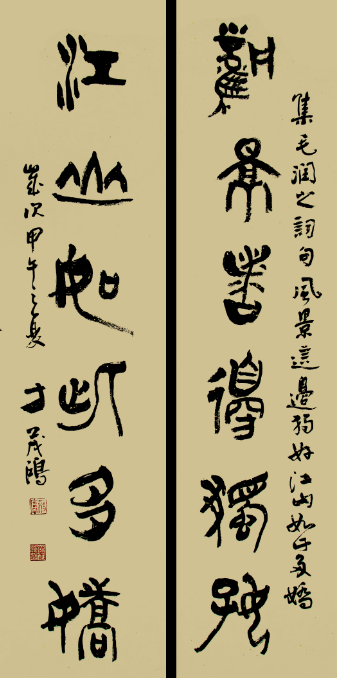 集毛潤之詞句風景這邊獨好江山如此多嬌
風景這邊獨好
江山如此多嬌
歲次甲午之夏
茂鴻